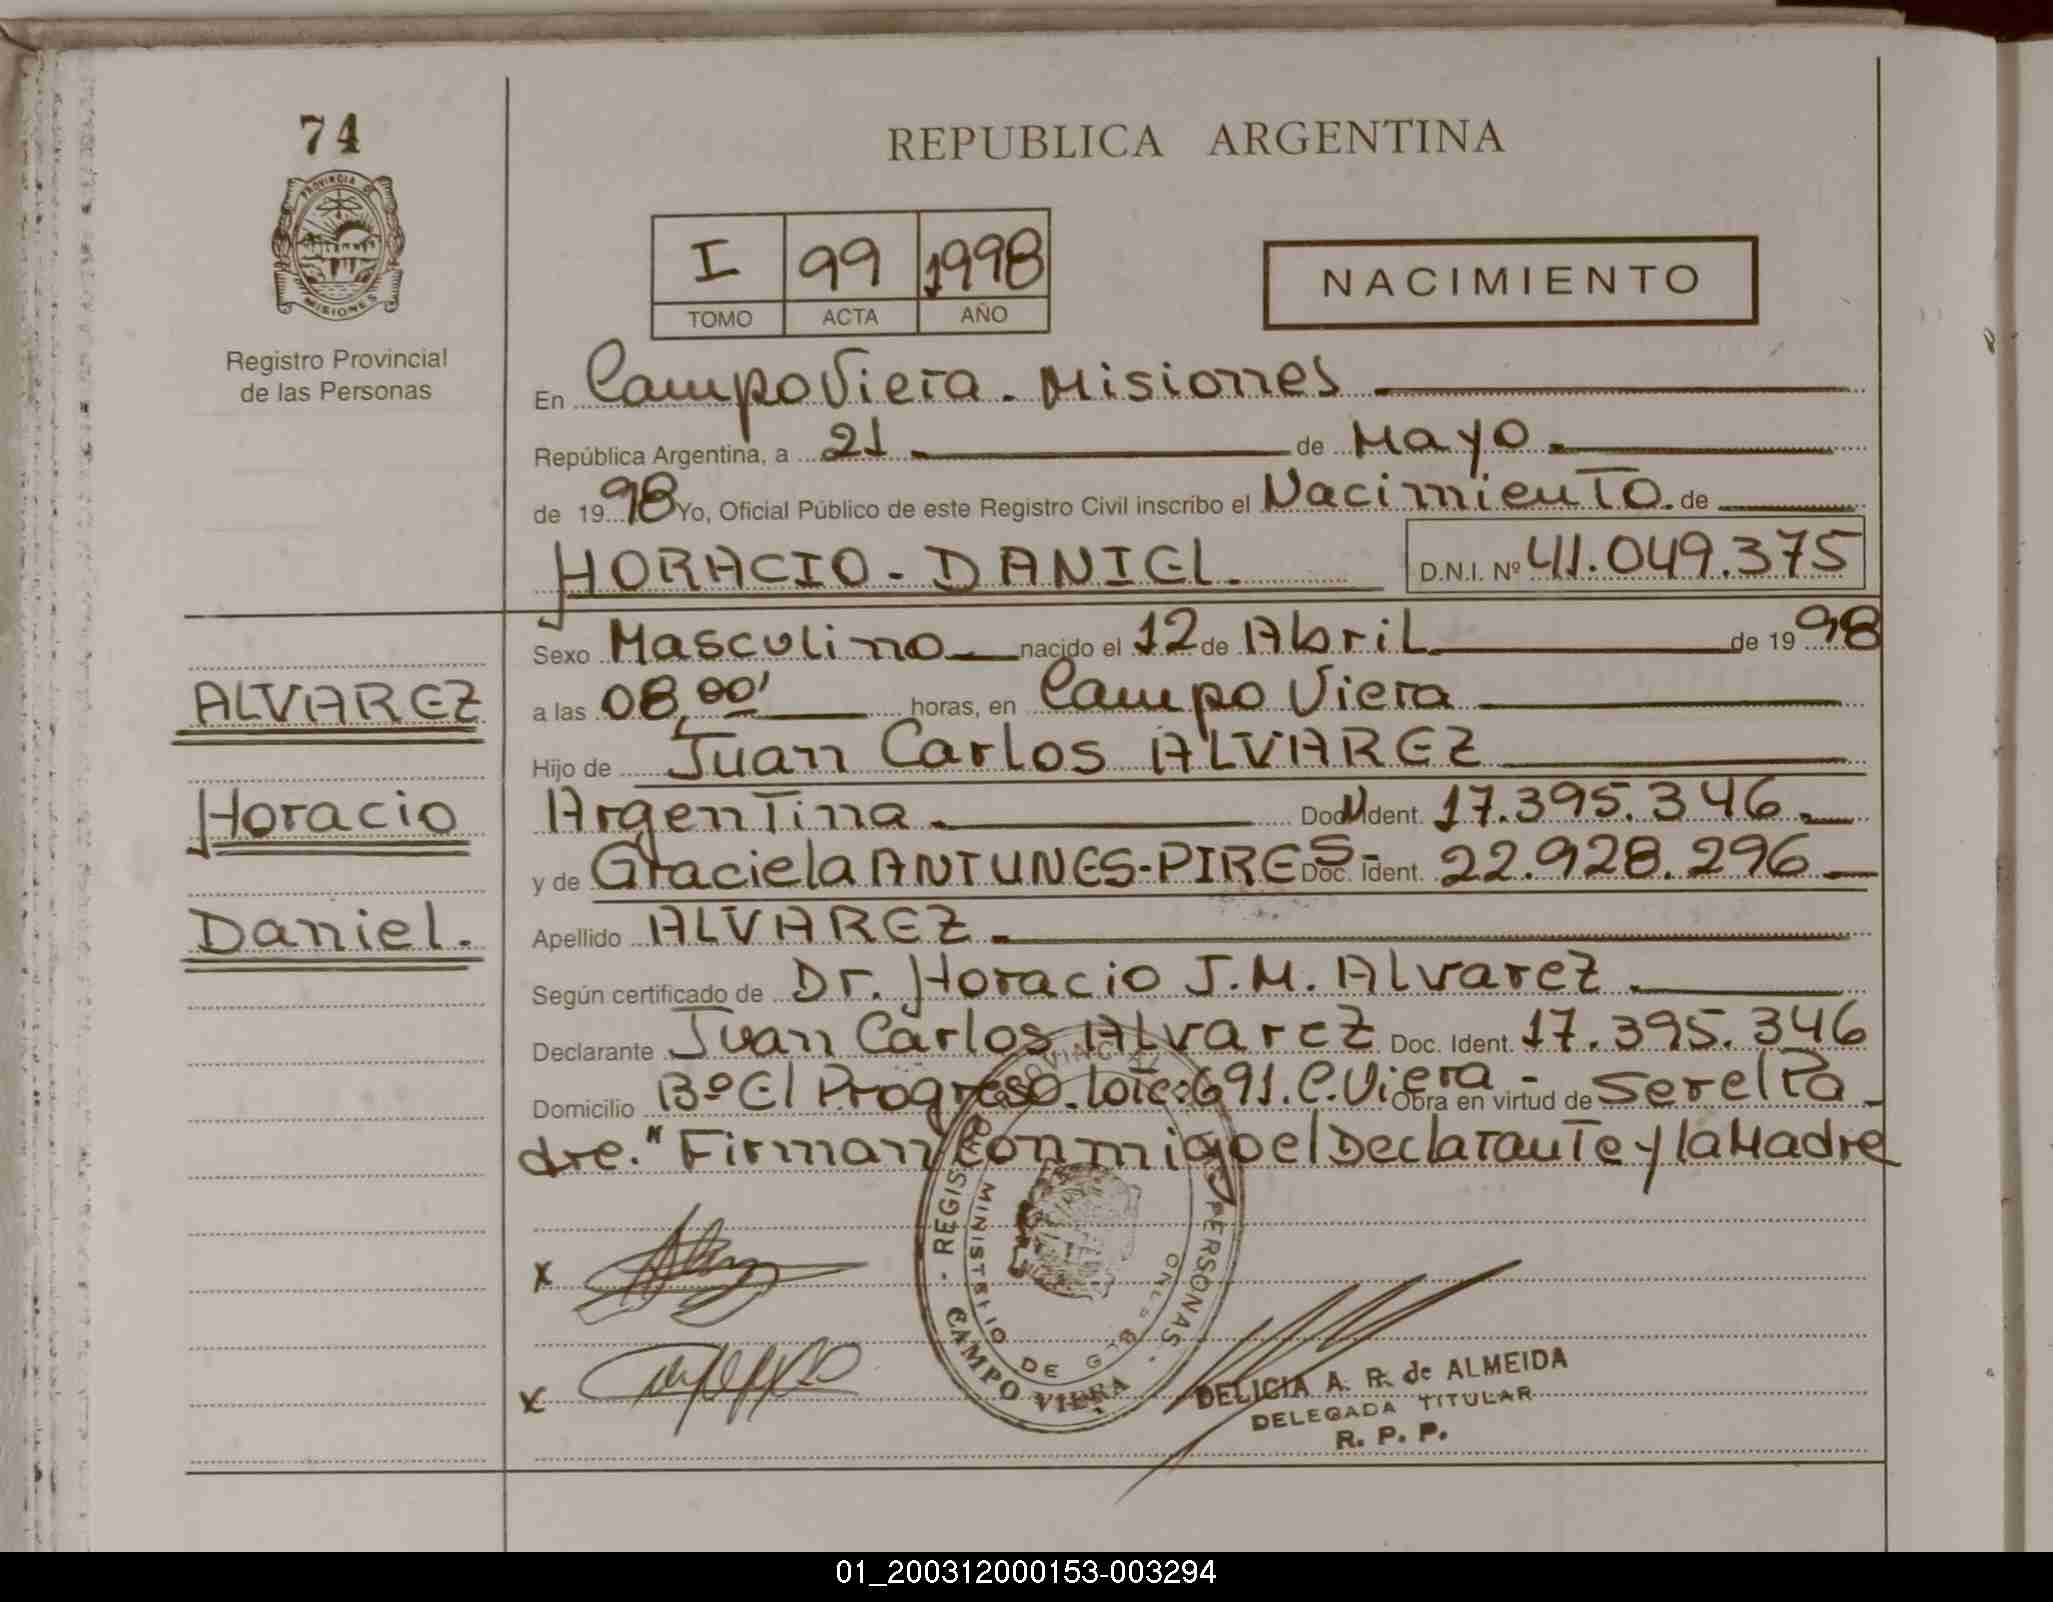 74
PROVINCIA DE
MISIONES
Registro Provincial
de las Personas
REPUBLICA ARGENTINA
I 99 1998
TOMO ACTA AÑO
NACIMIENTO
En Campo Viera - Misiones
República Argentina, a 21 de Mayo
de 1998 Yo, Oficial Público de este Registro Civil inscribo el Nacimiento de
HORACIO - DANIEL. D.N.I. Nº 41.049.375
Sexo Masculino nacido el 12 de Abril de 1998
ALVAREZ
a las 08,00' horas, en Campo Viera
Hijo de Juan Carlos ALVAREZ
Horacio
Argentina Doc. Ident. 17.395.346
y de Graciela ANTUNES-PIRES- Doc. Ident. 22.928.296
Daniel.
Apellido ALVAREZ
Según certificado de Dr. Horacio J.M. Alvarez
Declarante Juan Carlos Alvarez Doc. Ident. 17.395.346
Domicilio Bº El Progreso. Lote:691. C. Viera - Obra en virtud de Ser el Pa
dre." Firman Conmigo el Declarante y la Madre
REGIS PERSONAS
MINISTERIO DE
CAMPO VIERA
DELICIA A. R. de ALMEIDA
DELEGADA TITULAR
R. P. P.
01_200312000153-003294